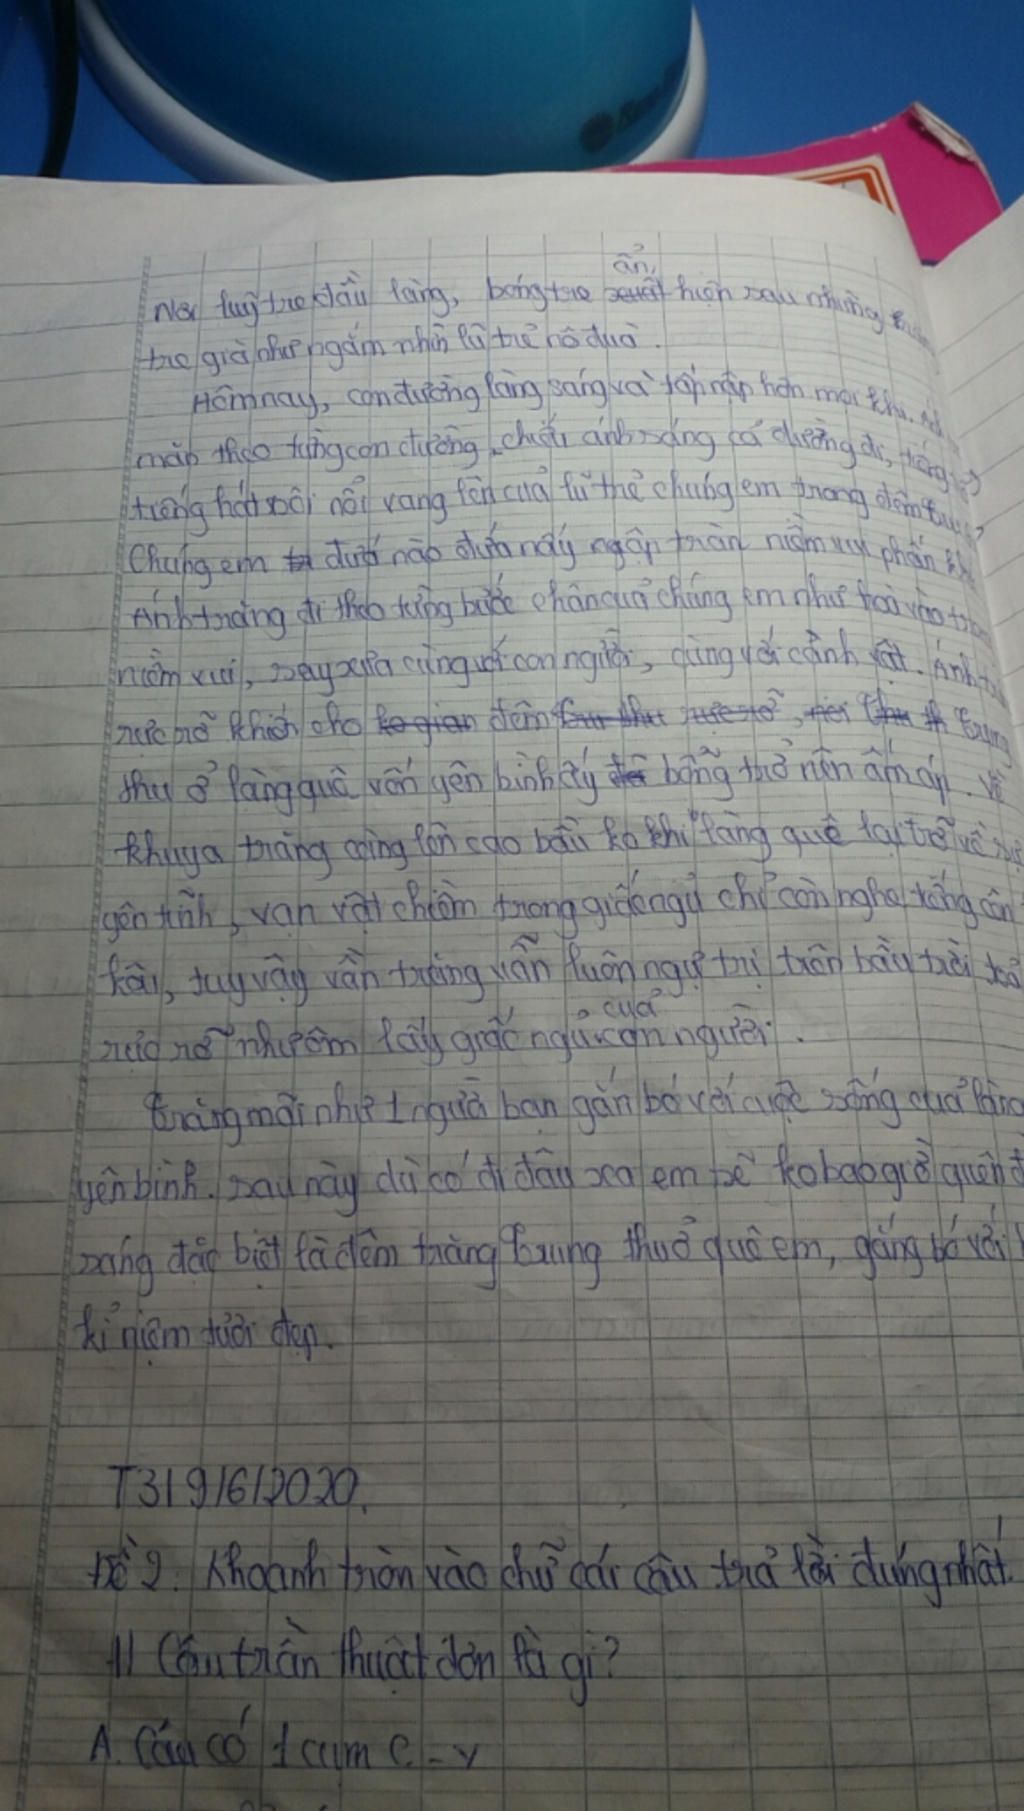 Nơi luỹ tre đầu làng, bóng tre ẩn, hiện sau những
tre già như ngắm nhìn lũ trẻ nô đùa.
Hôm nay, con đường làng sáng và tấp nập hơn mọi khi.
mắp theo từng con đường, chiếu ánh sáng cả đường đi, tiếng
tiếng hát sôi nổi vang lên của lũ trẻ chúng em trong đêm
Chúng em đứa nào đứa nấy ngập tràn niềm vui phấn
Ánh trăng đi theo từng bước chân của chúng em như hoà vào
niềm vui, say xưa cùng với con người, cùng với cảnh vật. Ánh
rực rỡ khiến cho đêm Trung
thu ở làng quê vốn yên bình ấy bỗng trở nên ấm áp. Về
khuya trăng càng lên cao bầu ko khí làng quê lại trở về
yên tĩnh, vạn vật chìm trong giấc ngủ chỉ còn nghe tiếng côn
tuy vậy vần trăng vẫn luôn ngự trị trên bầu trời toả
rực rỡ như ôm lấy giấc ngủ của con người.
Trăng mãi như 1 người bạn gắn bó với cuộc sống của làng
yên bình. Sau này dù có đi đâu xa em sẽ ko bao giờ quên
sáng đặc biệt là đêm trăng Trung thu ở quê em, gắng bó với
kỉ niệm tươi đẹp.
T3/9/6/2020.
Đề 2: Khoanh tròn vào chữ cái câu trả lời đúng nhất.
1/ Câu trần thuật đơn là gì?
A. Câu có 1 cụm C-V